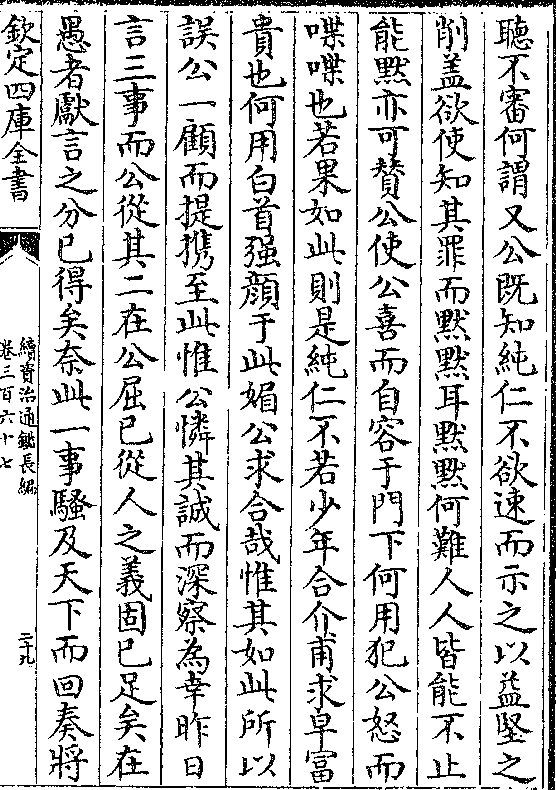 聽不審何謂又公既知純仁不欲速而示之以益堅之
削盖欲使知其罪而黙黙耳黙黙何難人人皆能不止
能黙亦可贊公使公喜而自容于門下何用犯公怒而
喋喋也若果如此則是純仁不若少年合介甫求早富
貴也何用白首强顔于此媚公求合哉惟其如此所以
誤公一顧而提携至此惟公憐其誠而深察為幸昨日
言三事而公從其二在公屈已從人之義固已足矣在
愚者獻言之分已得矣奈此一事騷及天下而回奏將
欽定四庫全書
續資治通鑑長編
卷三百六十七
二十九